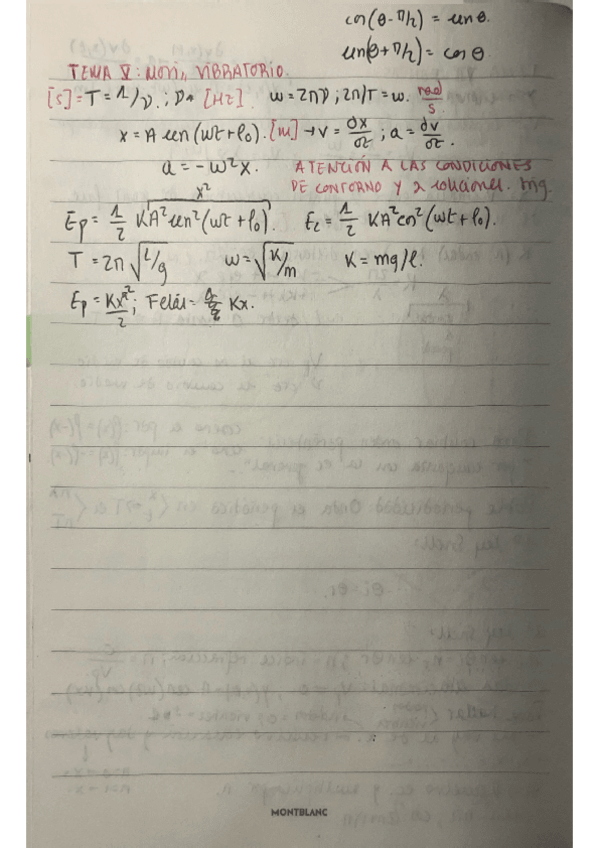 cos(θ-π/2) = sen θ.
sen(θ+π/2) = cos θ
TEMA V: MOV. VIBRATORIO.
[s] = T = 1/ν ; ν → [Hz]. ω = 2πν ; 2π/T = ω. rad/s
x = A sen(ωt+φ0). [m] → v = dx/dt ; a = dv/dt.
a = -ω²x. ATENCIÓN A LAS CONDICIONES
DE CONTORNO Y 2 soluciones. trig.
x²
Ep = 1/2 KA² sen²(ωt+φ0). Ec = 1/2 KA² cos²(ωt+φ0).
T = 2π √L/g ω = √K/m K = mg/l.
Ep = Kx²/2 ; Felás = Kx.
MONTBLANC